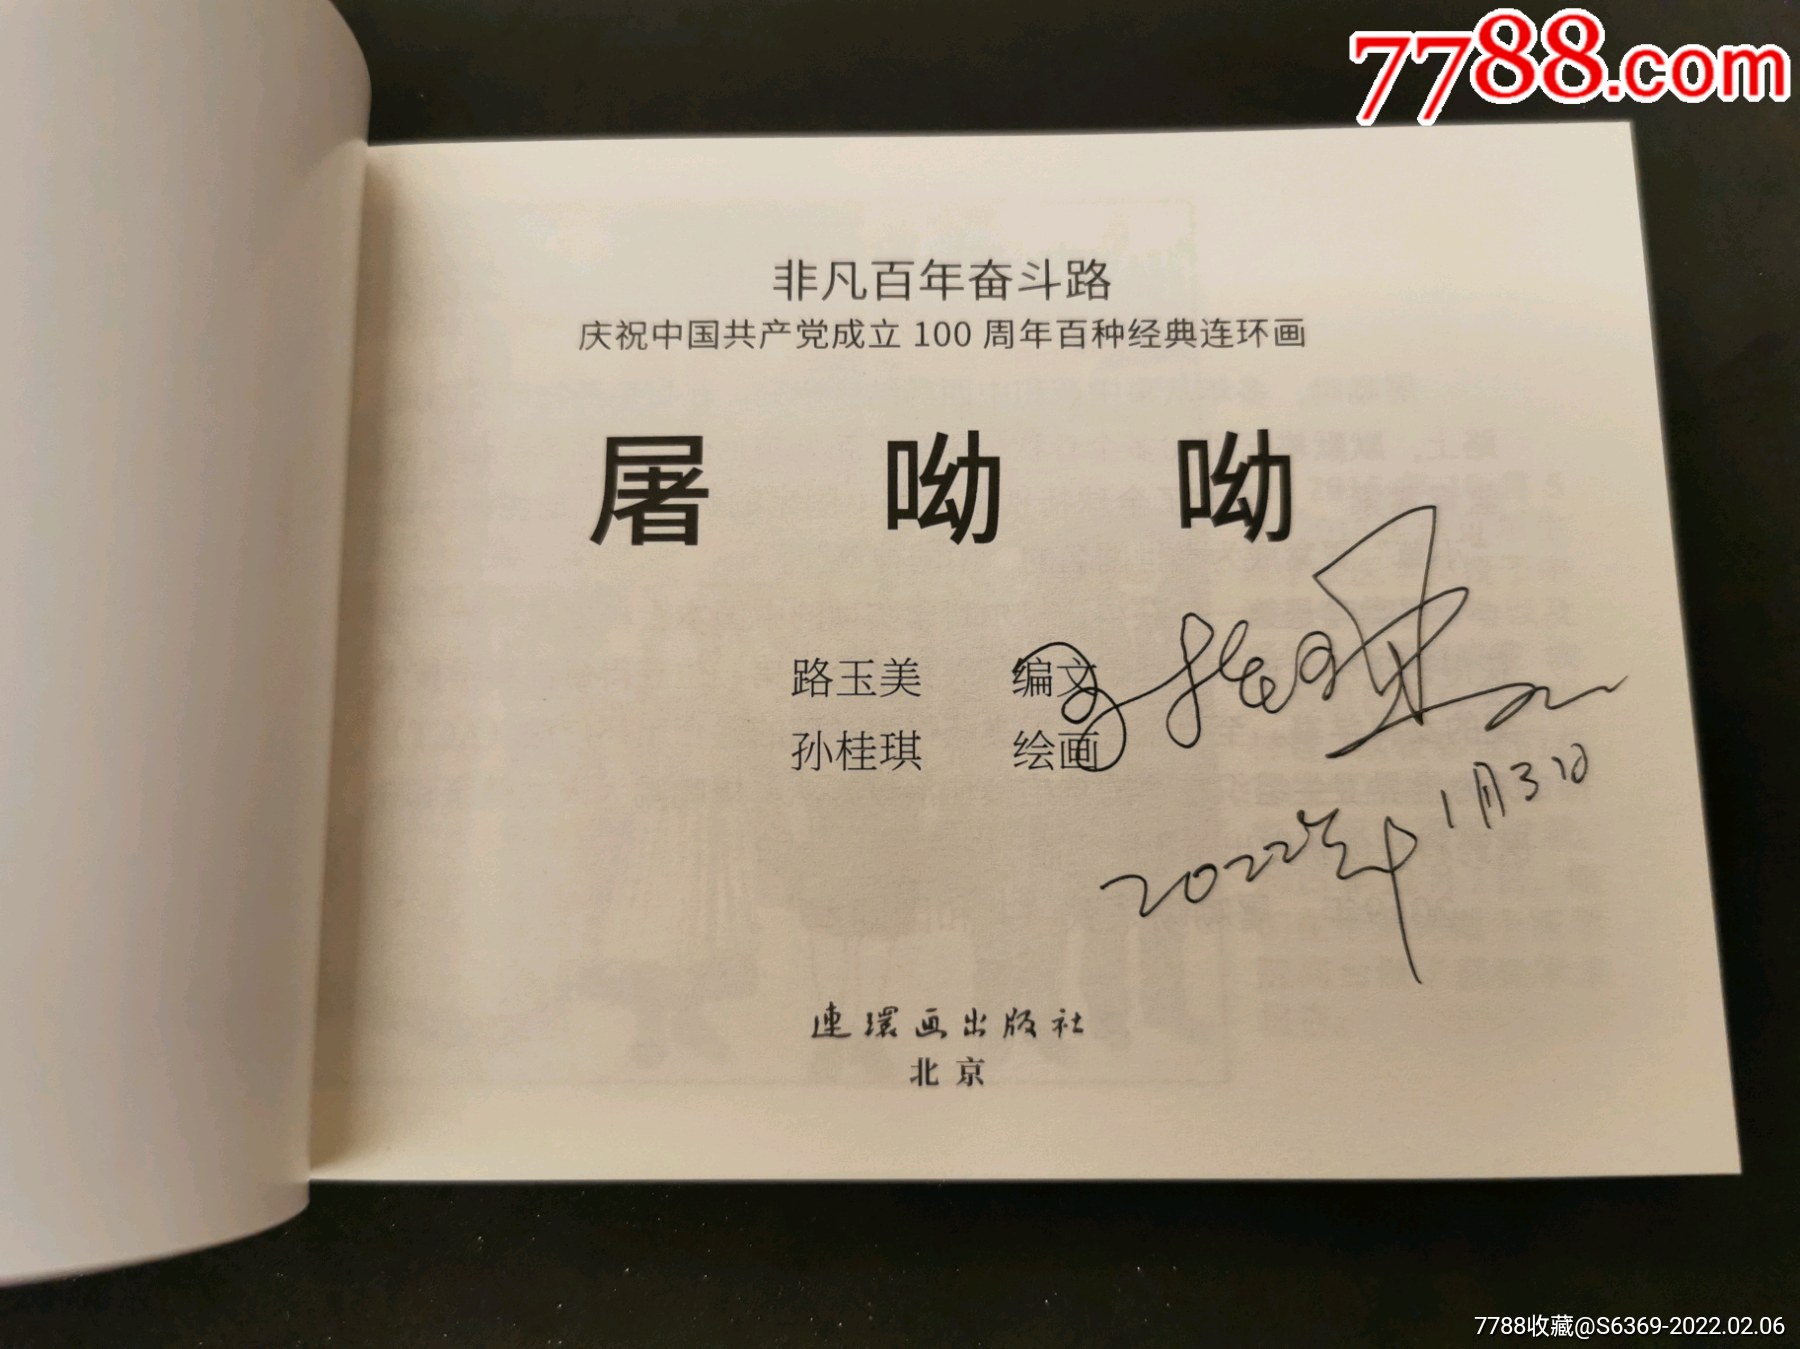 7788.com
非凡百年奋斗路
庆祝中国共产党成立 100 周年百种经典连环画
屠呦呦
路玉美 编文
孙桂琪 绘画
2022年1月3日
連環画出版社
北京
7788收藏@S6369-2022.02.06